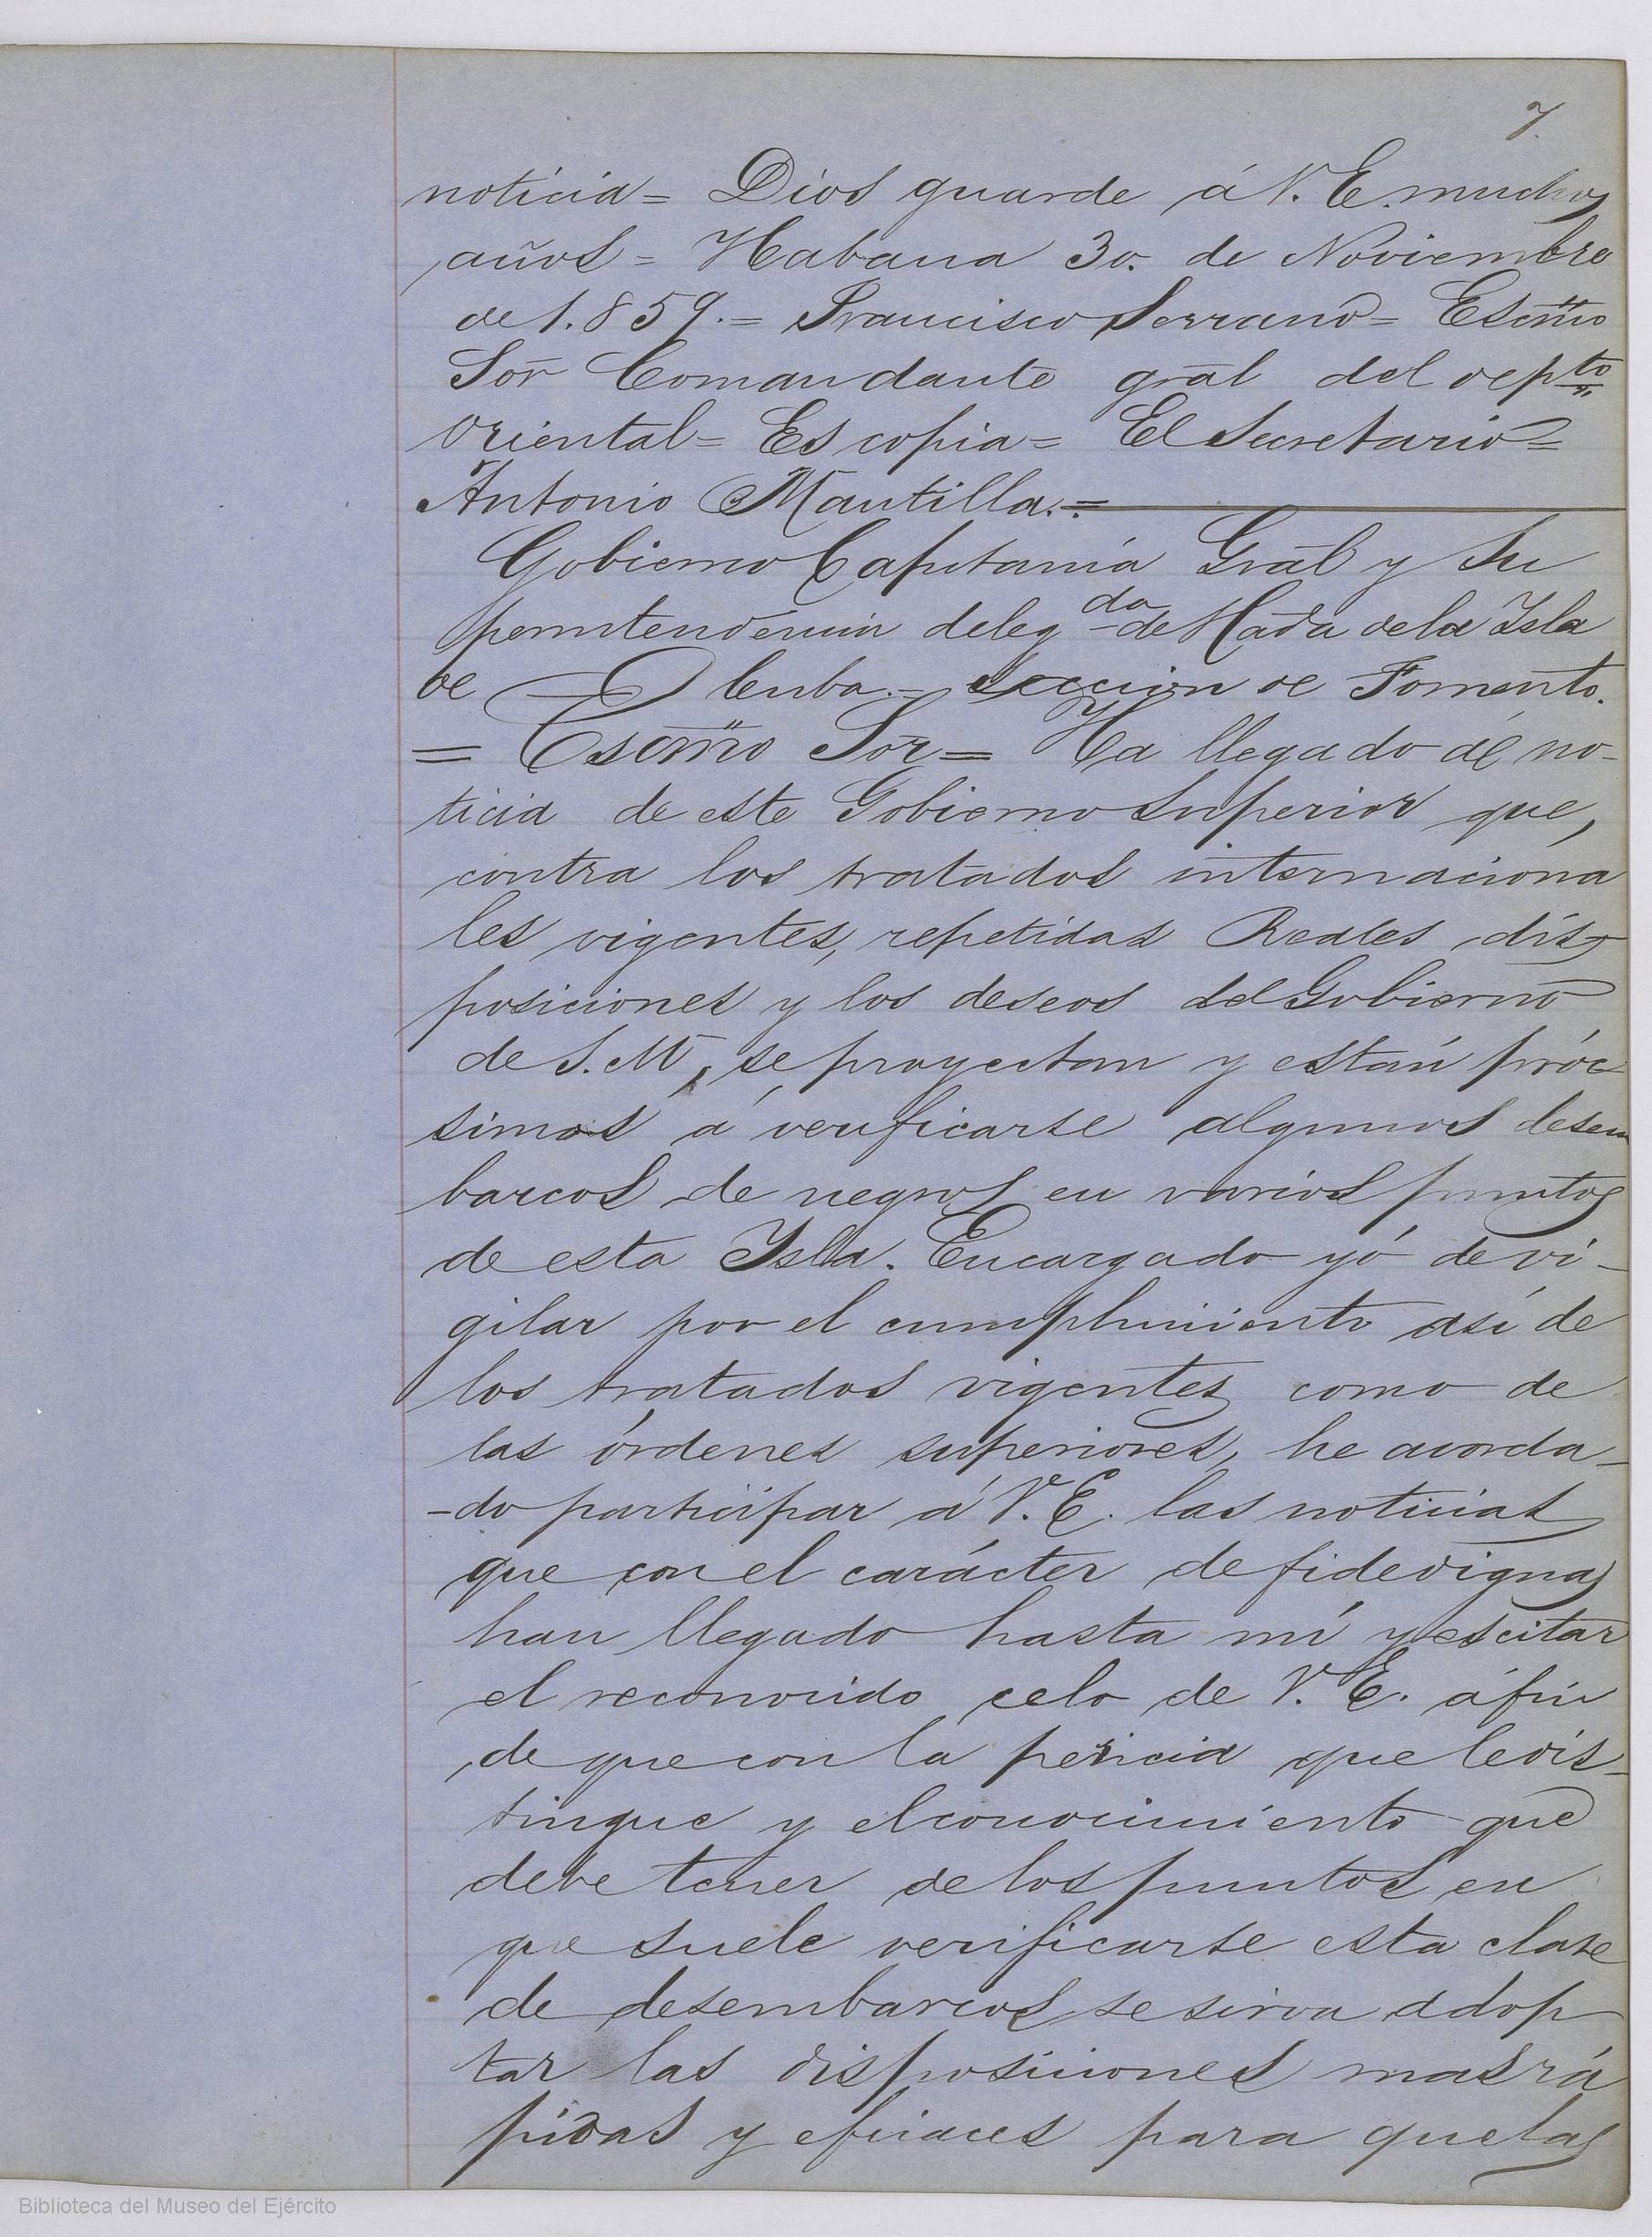 7.
noticia= Dios guarde á V. E. muchos
años= Habana 30. de Noviembre
de 1.859.= Francisco Serrano= Escmo
Sor Comandante gral del depto
oriental= Es copia= El Secretario=
Antonio Mantilla.=
Gobierno Capitanía Gral y Su
perintendencia delegda de Hada de la Isla
de Cuba.= Seccion de Fomento.
= Escmo Sor= Ha llegado á no-
ticia de este Gobierno Superior que,
contra los tratados internaciona
les vigentes, repetidas Reales dis-
posiciones y los deseos del Gobierno
de S. M, se proyectan y están próc
simos á verificarse algunos desem
barcos de negros en varios puntos
de esta Ysla. Encargado yó de vi-
gilar por el cumplimiento así de
los tratados vigentes como de
las órdenes superiores, he acorda-
-do participar á V. E. las noticias
que con el carácter de fidedignas
han llegado hasta mí y escitar
el reconocido celo de V. E. á fin
de que con la pericia que le dis-
tingue y el conocimiento que
debe tener de los puntos en
que suele verificarse esta clase
de desembarcos se sirva adop
tar las disposiciones mas rá
pidas y eficaces para que las
Biblioteca del Museo del Ejército